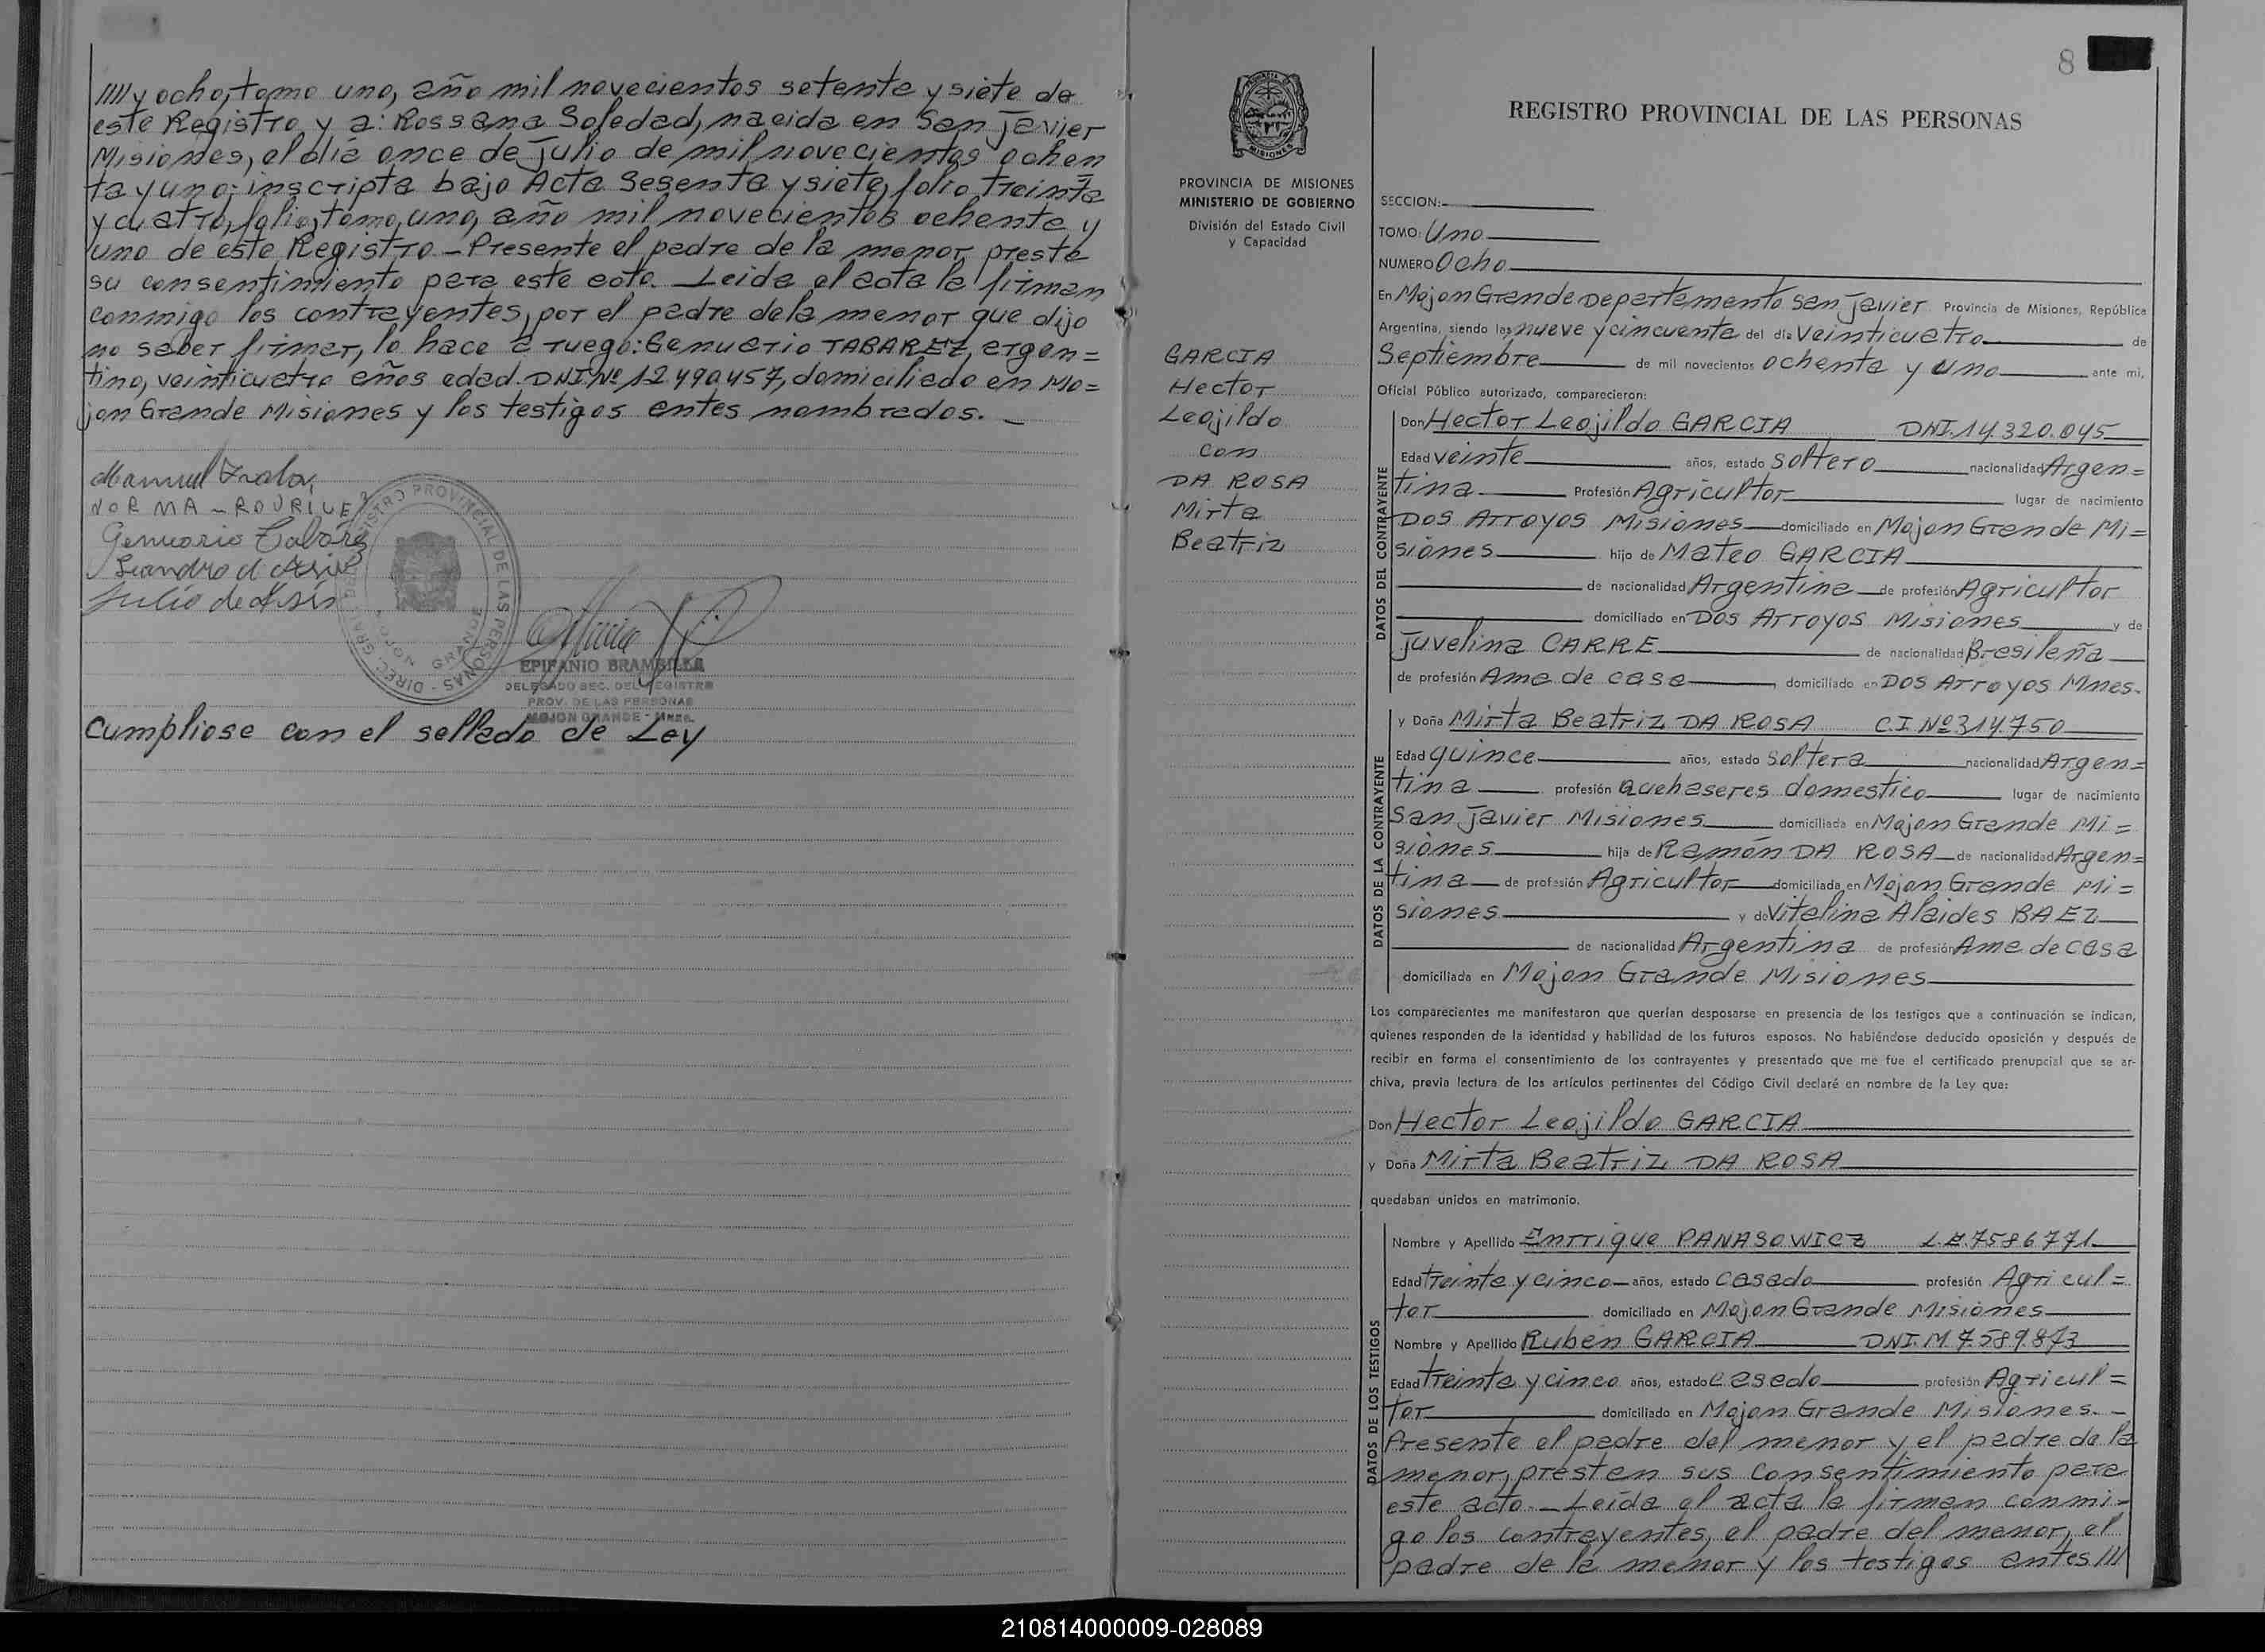 //// y ocho, tomo uno, año mil novecientos setenta y siete de
este Registro y a: Rossana Soledad, nacida en San Javier
Misiones, el día once de Julio de mil novecientos ochen
ta y uno; inscripta bajo Acta Sesenta y siete, folio treinta
y cuatro, folio, tomo, uno, año mil novecientos ochenta y
uno de este Registro.- Presente el padre de la menor presta
su consentimiento para este acto. Leida el acta la firman
conmigo los contrayentes, por el padre de la menor que dijo
no saber firmar, lo hace a ruego: Genuario TABAREZ, argen=
tino, veinticuatro años edad. DNI Nº 12.490.457, domiciliado en Mo=
jon Grande Misiones y los testigos antes nombrados. -
Manuel
NORMA
Genuario Tabarez
Leandro d
Julio de
DIREC. GRAL. DEL REGISTRO PROVINCIAL DE LAS PERSONAS -
MOJON GRANDE
EPIFANIO BRAMBILLA
DELEGADO SEC. DEL REGISTRO
PROV. DE LAS PERSONAS
MOJON GRANDE - Mnes.
Cumpliose con el sellado de Ley
8
PROVINCIA DE MISIONES
MINISTERIO DE GOBIERNO
División del Estado Civil
y Capacidad
GARCIA
Hector
Leojildo
con
DA ROSA
Mirta
Beatriz
REGISTRO PROVINCIAL DE LAS PERSONAS
SECCION:
TOMO: Uno
NUMERO Ocho
En Mojon Grande Departamento San Javier Provincia de Misiones, República
Argentina, siendo las nueve y cincuenta del día veinticuatro de
Septiembre de mil novecientos ochenta y uno ante mi,
Oficial Público autorizado, comparecieron:
DATOS DEL CONTRAYENTE
Don Hector Leojildo GARCIA DNI. 14.320.045
Edad veinte años, estado soltero nacionalidad Argen=
tina Profesión Agricultor lugar de nacimiento
Dos Arroyos Misiones domiciliado en Mojon Grande Mi=
siones hijo de Mateo GARCIA
de nacionalidad Argentina de profesión Agricultor
domiciliado en Dos Arroyos Misiones y de
Juvelina CARRE de nacionalidad Brasileña
de profesión Ama de casa domiciliado en Dos Arroyos Mnes.
DATOS DE LA CONTRAYENTE
y Doña Mirta Beatriz DA ROSA C.I. Nº 314.750
Edad quince años, estado soltera nacionalidad Argen=
tina profesión Quehaseres domestico lugar de nacimiento
San Javier Misiones domiciliada en Mojon Grande Mi=
siones hija de Ramón DA ROSA de nacionalidad Argen=
tina de profesión Agricultor domiciliada en Mojon Grande Mi=
siones y de Vitalina Alaides BAEZ
de nacionalidad Argentina de profesión Ama de casa
domiciliada en Mojon Grande Misiones
Los comparecientes me manifestaron que querían desposarse en presencia de los testigos que a continuación se indican,
quienes responden de la identidad y habilidad de los futuros esposos. No habiéndose deducido oposición y después de
recibir en forma el consentimiento de los contrayentes y presentado que me fue el certificado prenupcial que se ar-
chiva, previa lectura de los artículos pertinentes del Código Civil declaré en nombre de la Ley que:
Don Hector Leojildo GARCIA
y Doña Mirta Beatriz DA ROSA
quedaban unidos en matrimonio.
DATOS DE LOS TESTIGOS
Nombre y Apellido Enrrique PANASOWICZ L.E. 7586771
Edad treinta y cinco años, estado casado profesión Agricul=
tor domiciliado en Mojon Grande Misiones
Nombre y Apellido Ruben GARCIA DNI. M 7.589.873
Edad treinta y cinco años, estado casado profesión Agricul=
tor domiciliado en Mojon Grande Misiones. -
Presente el padre del menor y el padre de la
menor, presten sus consentimiento para
este acto.- Leída el acta la firman conmi-
go los contrayentes, el padre del menor, el
padre de la menor y los testigos antes ///
210814000009-028089